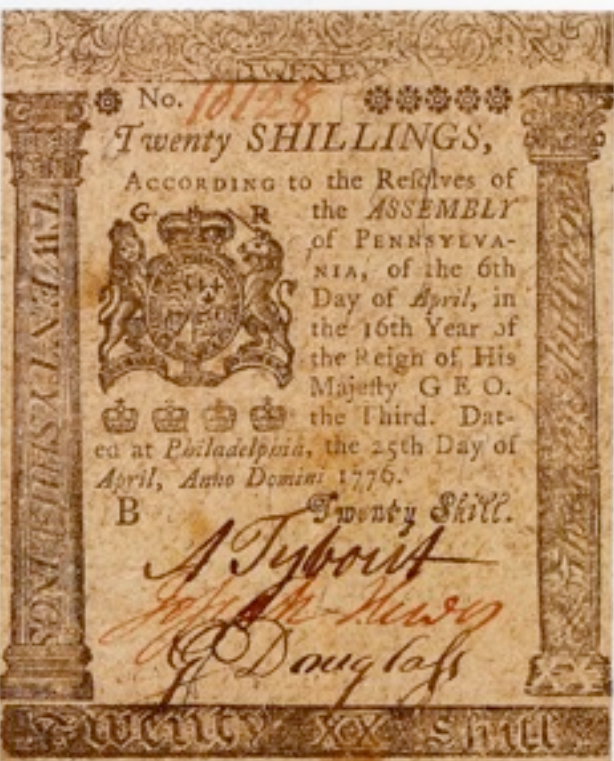 TWENTY
No. 10128
Twenty SHILLINGS,
ACCORDING to the Reſolves of
G R the ASSEMBLY
of PENNSYLVA-
NIA, of the 6th
Day of April, in
the 16th Year of
the Reign of His
Majeſty G E O.
the Third. Dat-
ed at Philadelphia, the 25th Day of
April, Anno Domini 1776.
B Twenty Shill.
A Tybout
Joſeph
G Douglaſs
TWENTY SHILLINGS
Twenty XX Shill
XX